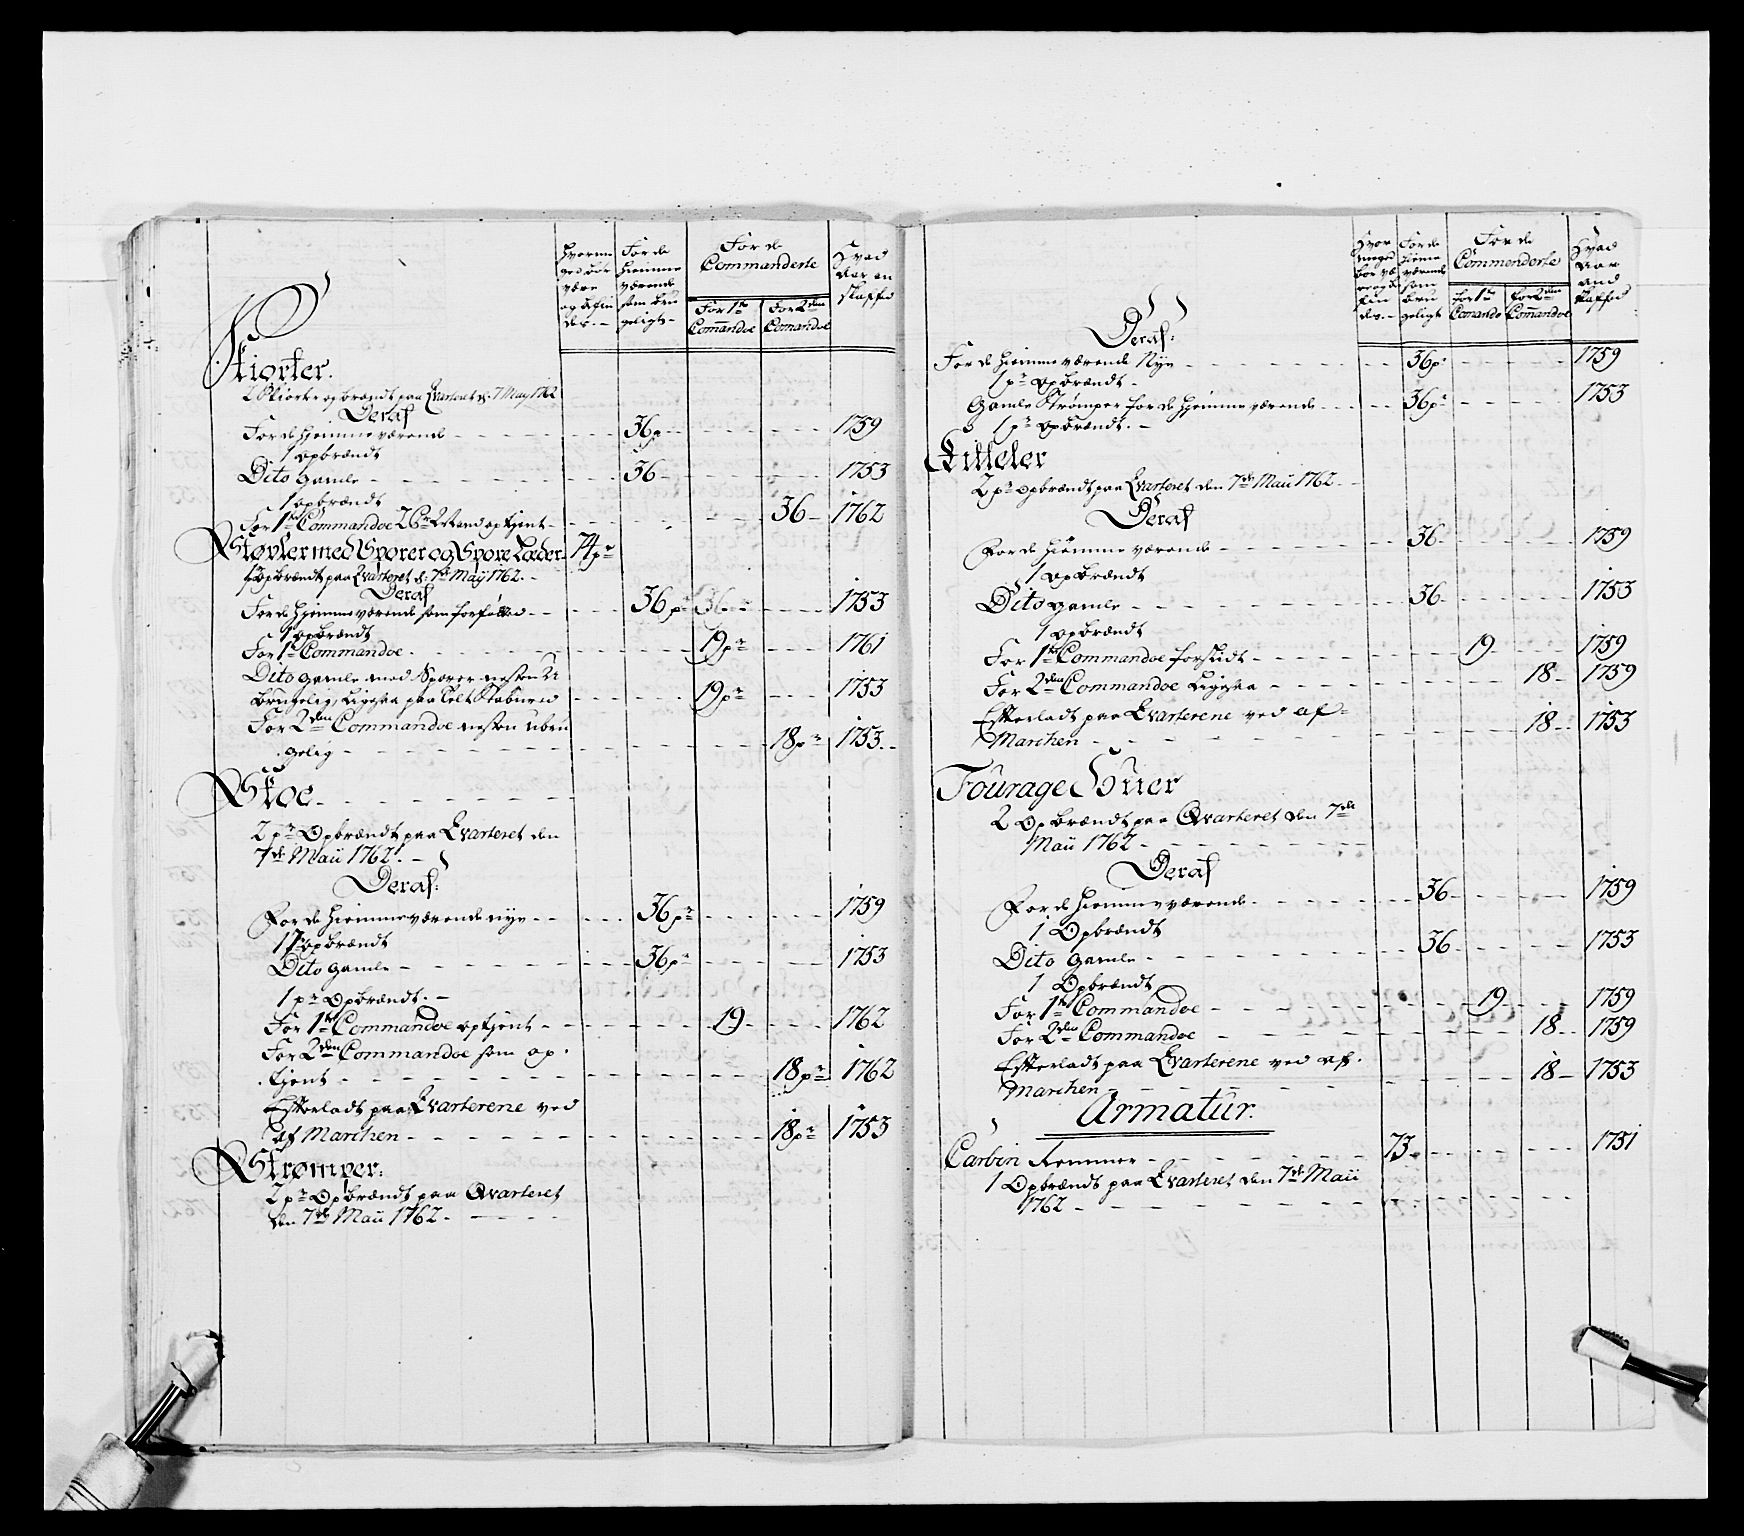 Hvorme
ged bør
være
og Befin
des. -
For de
hiemme
værende
som bru
geligt -
For de
Commanderte
For 1te
Commandoe
For 2den
Comandoe
Hvad
Aar an
skaffed
Skiorter.
2 Skiorter opbrændt paa Qvarteret d. 7 May 1762
Deraf
For de hiemmeværende - - - 36p - - - 1759
1 opbrændt
Dito gamle - - - 36 - - - 1753
1 opbrændt
For 1te Commandoe 26r 2 Mand optient - - - 36 - 1762
Støvler med Sporer og Spore Læder - 74pr
1 opbrændt paa Qvarteret d. 7de Maÿ 1762. -
Deraf
For de hiemmeværende som forføtted - - - 36pr 36 - - - 1753
1 opbrændt
For 1te Commandoe - - - 19pr - - - 1761
Dito gamle med Sporer nesten U
brugelig, Ligger paa Telt Stabured - - - 19pr - - - 1753
For 2den Commandoe nesten ubru
gelig - - - 18pr 1753. -
Skoe - - -
2 pr Opbrændt paa Qvarteret den
7de Maii 1762. -
Deraf:
For de hiemmeværende nye - - - 36pr - - - 1759
1 pr opbrændt
Dito gamle - - - 36pr - - - 1753
1 pr Opbrændt. -
For 1te Commandoe optient - - - 19 - - - 1762
For 2den Commandoe som op-
tient - - - 18pr 1762
Efterladt paa Qvarterene ved
af Marchen - - - 18pr 1753
Strømper:
2 pr Opbrændt paa Qvarteret
den 7de Maii 1762 - - -
Hvor
meget
bør væ
re og be
fin
des. -
For de
hieme
værende
som
bru
geligt
For de
Commenderte
For 1te
Comando
For 2den
Commandoe
Hvad
Aar
and
skaffed
Deraf:
For de hiemmeværende Nye - - - 36pr - - - 1759
1 pr Opbrændt -
Gamle Strømper for de hiemmeværende - - - 36pr - - - 1753
1 pr opbrændt. -
Kitteler
2 pr opbrændt paa Qvarteret den 7de Maii 1762 - -
Deraf
For de hiemmeværende - - - 36 - - - 1759
1 opbrændt
Dito gamle - - - 36 - - - 1753
1 opbrændt
For 1te Commandoe forslidt - - - 19 - - - 1759
For 2den Commandoe Liggesaa - - - 18 - 1759
Efterladt paa Qvarterene ved af-
Marchen - - - 18 - 1753
Fourage Huer
2 Opbrændt paa Qvarteret den 7de
Maii 1762 - - -
Deraf
For de hiemmeværende - - - 36 - - - 1759
1 Opbrændt
Dito gamle - - - 36 - - - 1753
1 Opbrændt
For 1te Commandoe - - - 19 - - - 1759
For 2den Commandoe - - - 18 - 1759
Efterladt paa Qvarterene ved af-
Marchen - - - 18 - 1753
Armatur.
Carbin Remmer - - - 73 - - - 1751
1 Opbrændt paa Qvarteret den 7de Maii
1762 - - -